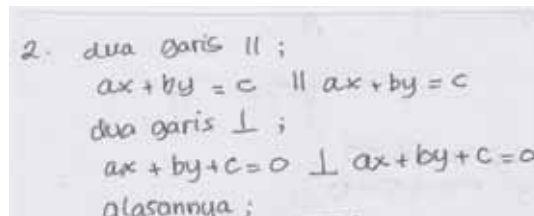 2. dua garis || ;
ax + by = c || ax + by = c
dua garis ⊥ ;
ax + by + c = 0 ⊥ ax + by + c = 0
alasannya ;